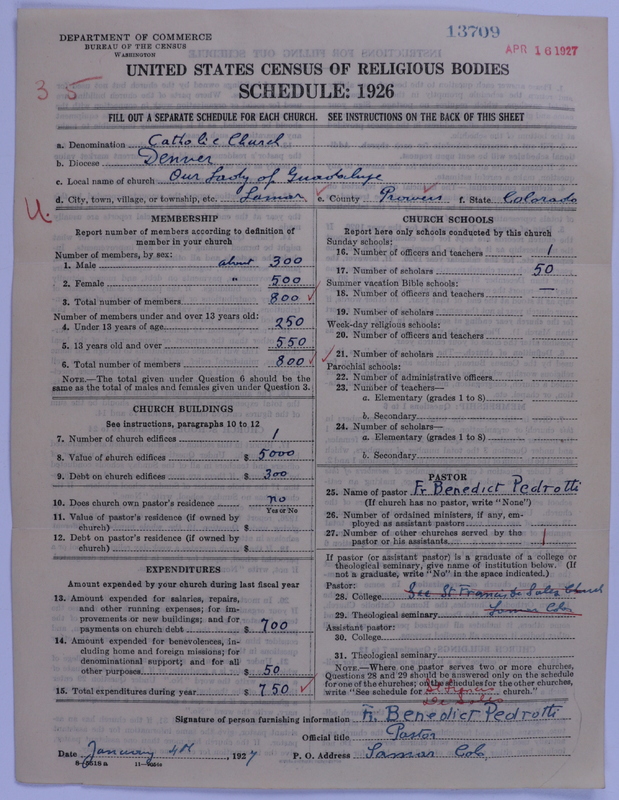 DEPARTMENT OF COMMERCE
BUREAU OF THE CENSUS
WASHINGTON
13709
APR 16 1927
35
UNITED STATES CENSUS OF RELIGIOUS BODIES
SCHEDULE: 1926
FILL OUT A SEPARATE SCHEDULE FOR EACH CHURCH. SEE INSTRUCTIONS ON THE BACK OF THIS SHEET
a. Denomination Catholic Church
b. Diocese Denver
c. Local name of church Our Lady of Guadalupe
d. City, town, village, or township, etc. Lamar e. County Prowers f. State Colorado
U.
MEMBERSHIP
Report number of members according to definition of
member in your church
Number of members, by sex:
1. Male about 300
2. Female " 500
3. Total number of members 800
Number of members under and over 13 years old:
4. Under 13 years of age 250
5. 13 years old and over 550
6. Total number of members 800
NOTE.—The total given under Question 6 should be the
same as the total of males and females given under Question 3.
CHURCH BUILDINGS
See instructions, paragraphs 10 to 12
7. Number of church edifices 1
8. Value of church edifices $ 5000
9. Debt on church edifices $ 300
10. Does church own pastor's residence no
Yes or No
11. Value of pastor's residence (if owned by
church) $
12. Debt on pastor's residence (if owned by
church) $
EXPENDITURES
Amount expended by your church during last fiscal year
13. Amount expended for salaries, repairs,
and other running expenses; for im-
provements or new buildings; and for
payments on church debt $ 700
14. Amount expended for benevolences, in-
cluding home and foreign missions; for
denominational support; and for all
other purposes $ 50
15. Total expenditures during year $ 750
CHURCH SCHOOLS
Report here only schools conducted by this church
Sunday schools:
16. Number of officers and teachers 1
17. Number of scholars 50
Summer vacation Bible schools:
18. Number of officers and teachers —
19. Number of scholars
Week-day religious schools:
20. Number of officers and teachers
21. Number of scholars
Parochial schools:
22. Number of administrative officers
23. Number of teachers—
a. Elementary (grades 1 to 8)
b. Secondary
24. Number of scholars—
a. Elementary (grades 1 to 8)
b. Secondary
PASTOR
25. Name of pastor Fr. Benedict Pedrotti
(If church has no pastor, write "None")
26. Number of ordained ministers, if any, em-
ployed as assistant pastors
27. Number of other churches served by the
pastor or his assistants 1
If pastor (or assistant pastor) is a graduate of a college or
theological seminary, give name of institution below. (If
not a graduate, write "No" in the space indicated.)
Pastor:
28. College See St Francis de Sales Church
29. Theological seminary Lamar Colo
Assistant pastor:
30. College
31. Theological seminary
NOTE.—Where one pastor serves two or more churches,
Questions 28 and 29 should be answered only on the schedule
for one of the churches; on the schedules for the other churches,
write "See schedule for St Francis church."
De Sales
Signature of person furnishing information Fr. Benedict Pedrotti
Official title Pastor
Date January 4th, 1927 P. O. Address Lamar Colo.